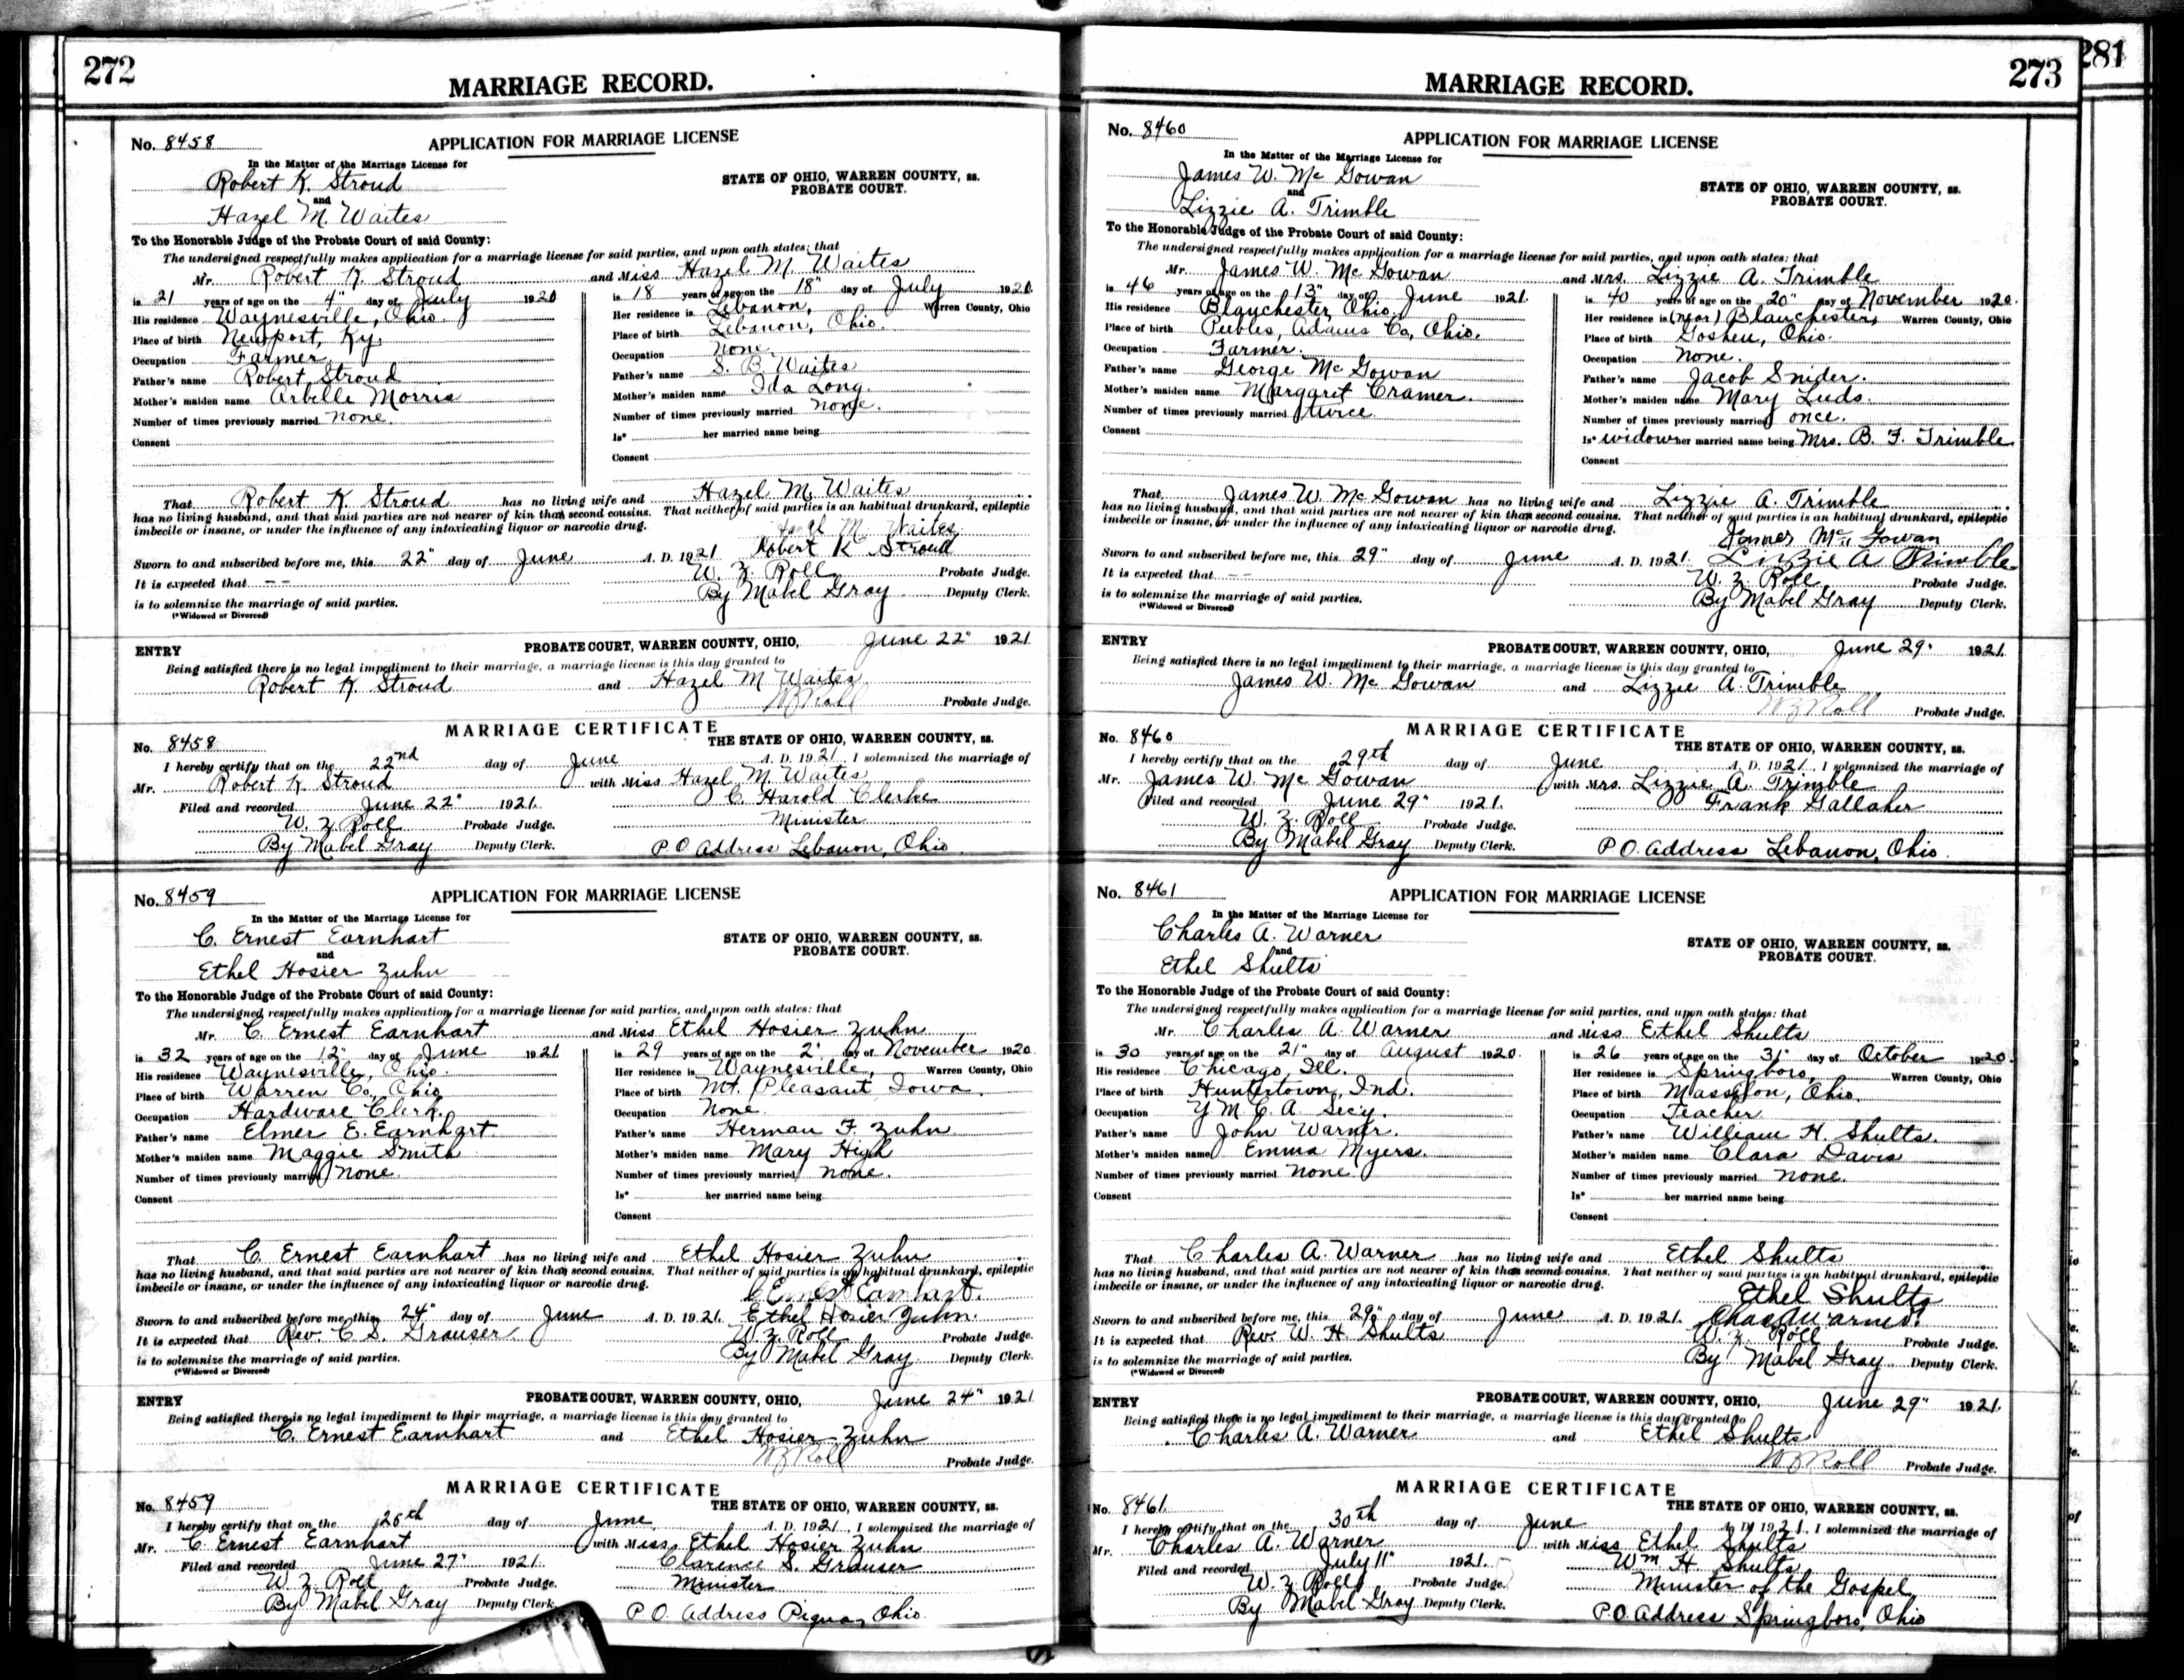 272
MARRIAGE RECORD.
No. 8458
APPLICATION FOR MARRIAGE LICENSE
In the Matter of the Marriage License for
Robert K. Stroud
and
Hazel M. Waites
STATE OF OHIO, WARREN COUNTY, ss.
PROBATE COURT.
To the Honorable Judge of the Probate Court of said County:
The undersigned respectfully makes application for a marriage license for said parties, and upon oath states: that
Mr. Robert K Stroud and Miss Hazel M Waites
is 21 years of age on the 4" day of July 1920
His residence Waynesville, Ohio.
Place of birth Newport, Ky.
Occupation Farmer
Father's name Robert Stroud
Mother's maiden name Arbelle Morris
Number of times previously married none.
Consent
is 18 years of age on the 18" day of July 1920
Her residence is Lebanon, Warren County, Ohio
Place of birth Lebanon, Ohio.
Occupation none
Father's name S. B Waites
Mother's maiden name Ida Long.
Number of times previously married none.
Is* her married name being
Consent
That Robert K Stroud has no living wife and Hazel M. Waites
has no living husband, and that said parties are not nearer of kin than second cousins. That neither of said parties is an habitual drunkard, epileptic
imbecile or insane, or under the influence of any intoxicating liquor or narcotic drug.
Hazel M. Waites
Sworn to and subscribed before me, this 22" day of June A. D. 1921 Robert K Stroud
It is expected that -- W. Z. Roll Probate Judge.
is to solemnize the marriage of said parties. By Mabel Gray Deputy Clerk.
(*Widowed or Divorced)
ENTRY PROBATE COURT, WARREN COUNTY, OHIO, June 22" 1921
Being satisfied there is no legal impediment to their marriage, a marriage license is this day granted to
Robert K. Stroud and Hazel M Waites
W Z Roll Probate Judge.
MARRIAGE CERTIFICATE
No. 8458 THE STATE OF OHIO, WARREN COUNTY, ss.
I hereby certify that on the 22nd day of June A. D. 1921, I solemnized the marriage of
Mr. Robert K. Stroud with Miss Hazel M. Waites
Filed and recorded June 22" 1921. C. Harold Clerke
W. Z Roll Probate Judge. Minister
By Mabel Gray Deputy Clerk. P.O Address Lebanon, Ohio.
No. 8459
APPLICATION FOR MARRIAGE LICENSE
In the Matter of the Marriage License for
C. Ernest Earnhart
and
Ethel Hosier Zuhn
STATE OF OHIO, WARREN COUNTY, ss.
PROBATE COURT.
To the Honorable Judge of the Probate Court of said County:
The undersigned respectfully makes application for a marriage license for said parties, and upon oath states: that
Mr. C. Ernest Earnhart and Miss Ethel Hosier Zuhn
is 32 years of age on the 12" day of June 1921
His residence Waynesville, Ohio.
Place of birth Warren Co., Ohio
Occupation Hardware Clerk.
Father's name Elmer E. Earnhart.
Mother's maiden name Maggie Smith
Number of times previously married none
Consent
is 29 years of age on the 2" day of November 1920.
Her residence is Waynesville, Warren County, Ohio
Place of birth Mt. Pleasant, Iowa.
Occupation None
Father's name Herman F. Zuhn
Mother's maiden name Mary High
Number of times previously married none.
Is* her married name being
Consent
That C. Ernest Earnhart has no living wife and Ethel Hosier Zuhn
has no living husband, and that said parties are not nearer of kin than second cousins. That neither of said parties is an habitual drunkard, epileptic
imbecile or insane, or under the influence of any intoxicating liquor or narcotic drug.
C Ernest Earnhart.
Sworn to and subscribed before me, this 24" day of June A. D. 1921. Ethel Hosier Zuhn.
It is expected that Rev. C S. Grauser W. Z. Roll Probate Judge.
is to solemnize the marriage of said parties. By Mabel Gray Deputy Clerk.
(*Widowed or Divorced)
ENTRY PROBATE COURT, WARREN COUNTY, OHIO, June 24" 1921
Being satisfied there is no legal impediment to their marriage, a marriage license is this day granted to
C. Ernest Earnhart and Ethel Hosier Zuhn
W Z Roll Probate Judge.
MARRIAGE CERTIFICATE
No. 8459 THE STATE OF OHIO, WARREN COUNTY, ss.
I hereby certify that on the 26th day of June A. D. 1921, I solemnized the marriage of
Mr. C. Ernest Earnhart with Miss Ethel Hosier Zuhn
Filed and recorded June 27" 1921. Clarence S. Grauser
W Z Roll Probate Judge. Minister
By Mabel Gray Deputy Clerk P O. Address Piqua, Ohio.
273
MARRIAGE RECORD.
No. 8460
APPLICATION FOR MARRIAGE LICENSE
In the Matter of the Marriage License for
James W. Mc Gowan
and
Lizzie A. Trimble
STATE OF OHIO, WARREN COUNTY, ss.
PROBATE COURT.
To the Honorable Judge of the Probate Court of said County:
The undersigned respectfully makes application for a marriage license for said parties, and upon oath states: that
Mr. James W. Mc Gowan and Mrs. Lizzie A. Trimble
is 46 years of age on the 13" day of June 1921.
His residence Blanchester, Ohio.
Place of birth Peebles, Adams Co, Ohio.
Occupation Farmer.
Father's name George Mc Gowan
Mother's maiden name Margaret Cramer.
Number of times previously married twice
Consent
is 40 years of age on the 20" day of November 1920.
Her residence is (near) Blanchester, Warren County, Ohio
Place of birth Goshen, Ohio.
Occupation none.
Father's name Jacob Snider.
Mother's maiden name Mary Luds.
Number of times previously married once.
Is* widow her married name being Mrs. B. F. Trimble
Consent
That James W. Mc Gowan has no living wife and Lizzie A. Trimble
has no living husband, and that said parties are not nearer of kin than second cousins. That neither of said parties is an habitual drunkard, epileptic
imbecile or insane, or under the influence of any intoxicating liquor or narcotic drug.
James Mc Gowan
Sworn to and subscribed before me, this 29" day of June A. D. 1921. Lizzie A Trimble
It is expected that -- W. Z Roll Probate Judge.
is to solemnize the marriage of said parties. By Mabel Gray Deputy Clerk.
(*Widowed or Divorced)
ENTRY PROBATE COURT, WARREN COUNTY, OHIO, June 29" 1921.
Being satisfied there is no legal impediment to their marriage, a marriage license is this day granted to
James W. Mc Gowan and Lizzie A. Trimble
W Z Roll Probate Judge.
MARRIAGE CERTIFICATE
No. 8460 THE STATE OF OHIO, WARREN COUNTY, ss.
I hereby certify that on the 29th day of June A. D. 1921, I solemnized the marriage of
Mr. James W. Mc Gowan with Mrs. Lizzie A. Trimble
Filed and recorded June 29" 1921. Frank Gallaher
W. Z. Roll Probate Judge.
By Mabel Gray Deputy Clerk. P.O. Address Lebanon, Ohio.
No. 8461
APPLICATION FOR MARRIAGE LICENSE
In the Matter of the Marriage License for
Charles A. Warner
and
Ethel Shults
STATE OF OHIO, WARREN COUNTY, ss.
PROBATE COURT.
To the Honorable Judge of the Probate Court of said County:
The undersigned respectfully makes application for a marriage license for said parties, and upon oath states: that
Mr. Charles A. Warner and Miss Ethel Shults
is 30 years of age on the 21" day of August 1920.
His residence Chicago, Ill.
Place of birth Huntertown, Ind.
Occupation Y M C. A Sec'y.
Father's name John Warner.
Mother's maiden name Emma Myers.
Number of times previously married none
Consent
is 26 years of age on the 31" day of October 1920.
Her residence is Springboro, Warren County, Ohio
Place of birth Massillon, Ohio.
Occupation Teacher
Father's name William H. Shults.
Mother's maiden name Clara Davis
Number of times previously married none.
Is* her married name being
Consent
That Charles A. Warner has no living wife and Ethel Shults
has no living husband, and that said parties are not nearer of kin than second cousins. That neither of said parties is an habitual drunkard, epileptic
imbecile or insane, or under the influence of any intoxicating liquor or narcotic drug.
Ethel Shults
Sworn to and subscribed before me, this 29" day of June A. D. 1921. Chas A Warner.
It is expected that Rev. W. H. Shults W. Z. Roll Probate Judge.
is to solemnize the marriage of said parties. By Mabel Gray Deputy Clerk.
(*Widowed or Divorced)
ENTRY PROBATE COURT, WARREN COUNTY, OHIO, June 29" 1921.
Being satisfied there is no legal impediment to their marriage, a marriage license is this day granted to
Charles A. Warner and Ethel Shults
W Z Roll Probate Judge.
MARRIAGE CERTIFICATE
No. 8461. THE STATE OF OHIO, WARREN COUNTY, ss.
I hereby certify that on the 30th day of June A. D. 1921, I solemnized the marriage of
Mr. Charles A. Warner with Miss Ethel Shults
Filed and recorded July 11" 1921. Wm H. Shults
W. Z Roll Probate Judge. Minister of the Gospel
By Mabel Gray Deputy Clerk. P.O. Address Springboro, Ohio
281